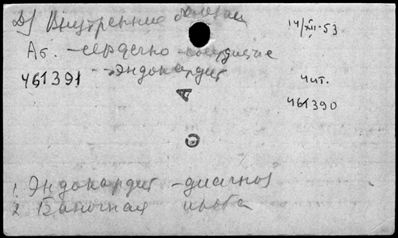 Д) Внутренние болезни
14/XII-53
Аб. - сердечно-сосудистые
461391 - эндокардит
Чит.
461390
А
С
1. Эндокардит - диагноз
2. Баночная проба